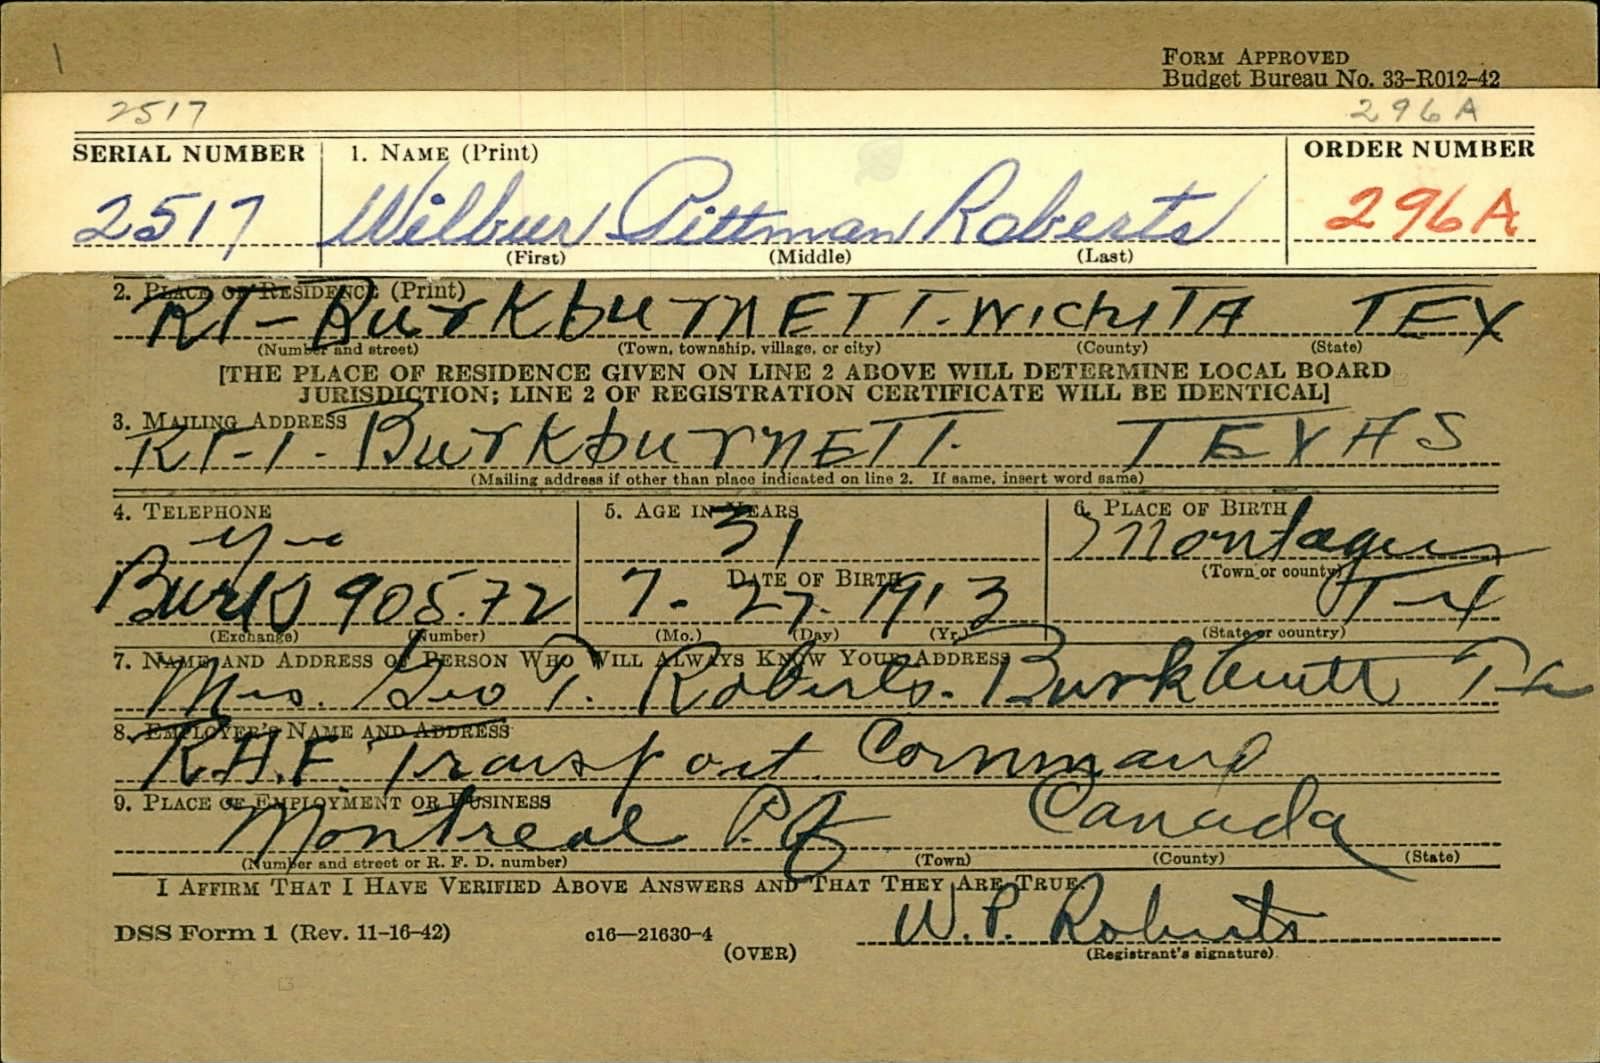 FORM APPROVED
Budget Bureau No. 33–R012–42
2517 296A
SERIAL NUMBER 1. NAME (Print) ORDER NUMBER
2517 Wilbur Pittman Roberts 296A
(First) (Middle) (Last)
2. PLACE OF RESIDENCE (Print)
RT– Burkburnett. Wichita TEX
(Number and street) (Town, township, village, or city) (County) (State)
[THE PLACE OF RESIDENCE GIVEN ON LINE 2 ABOVE WILL DETERMINE LOCAL BOARD
JURISDICTION; LINE 2 OF REGISTRATION CERTIFICATE WILL BE IDENTICAL]
3. MAILING ADDRESS
RT-1. Burkburnett. TEXAS
(Mailing address if other than place indicated on line 2. If same, insert word same)
4. TELEPHONE 5. AGE IN YEARS 6. PLACE OF BIRTH
31 Montague
(Town or county)
DATE OF BIRTH
905.72 7- 27. 1913 Tex
(Exchange) (Number) (Mo.) (Day) (Yr.) (State or country)
7. NAME AND ADDRESS OF PERSON WHO WILL ALWAYS KNOW YOUR ADDRESS
Mrs. Geo T. Roberts. Burkburnett Tex
8. EMPLOYER'S NAME AND ADDRESS
R.A.F. Transport Command
9. PLACE OF EMPLOYMENT OR BUSINESS
Montreal P.Q Canada
(Number and street or R. F. D. number) (Town) (County) (State)
I AFFIRM THAT I HAVE VERIFIED ABOVE ANSWERS AND THAT THEY ARE TRUE.
W. P. Roberts
DSS Form 1 (Rev. 11–16–42) c16—21630–4 (OVER) (Registrant's signature)